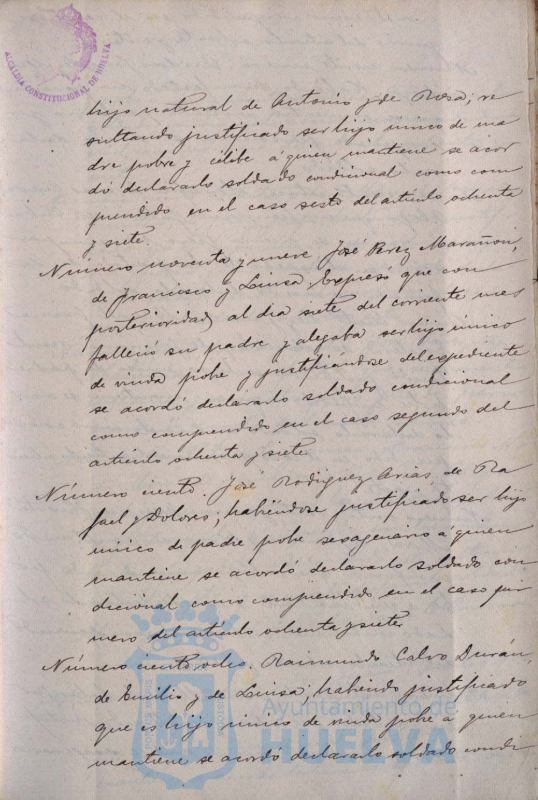 ALCALDIA CONSTITUCIONAL DE HUELVA
hijo natural de Antonio y de Rosa; re
sultando justificado ser hijo único de ma
dre pobre y célibe á quien mantiene se acor
dó declararlo soldado condicional como com
prendido en el caso sesto del artículo ochenta
y siete.
Número noventa y nueve José Perez Marañon,
de Francisco y Luisa, Expresó que con
posterioridad al dia siete del corriente mes
falleció su padre y alegaba ser hijo único
de viuda pobre y justificándose del expediente
se acordó declararlo soldado condicional
como comprendido en el caso segundo del
artículo ochenta y siete
Número ciento. José Rodriguez Arias de Ra
fael y Dolores; habiéndose justificado ser hijo
único de padre pobre sexagenario á quien
mantiene se acordó declararlo soldado con
dicional como comprendido en el caso pri
mero del artículo ochenta y siete
Número ciento ocho. Raimundo Calvo Durán,
de Emilio y de Luisa; habiendo justificado
que es hijo único de viuda pobre á quien
mantiene se acordó declararlo soldado condi
Ayuntamiento de
HUELVA